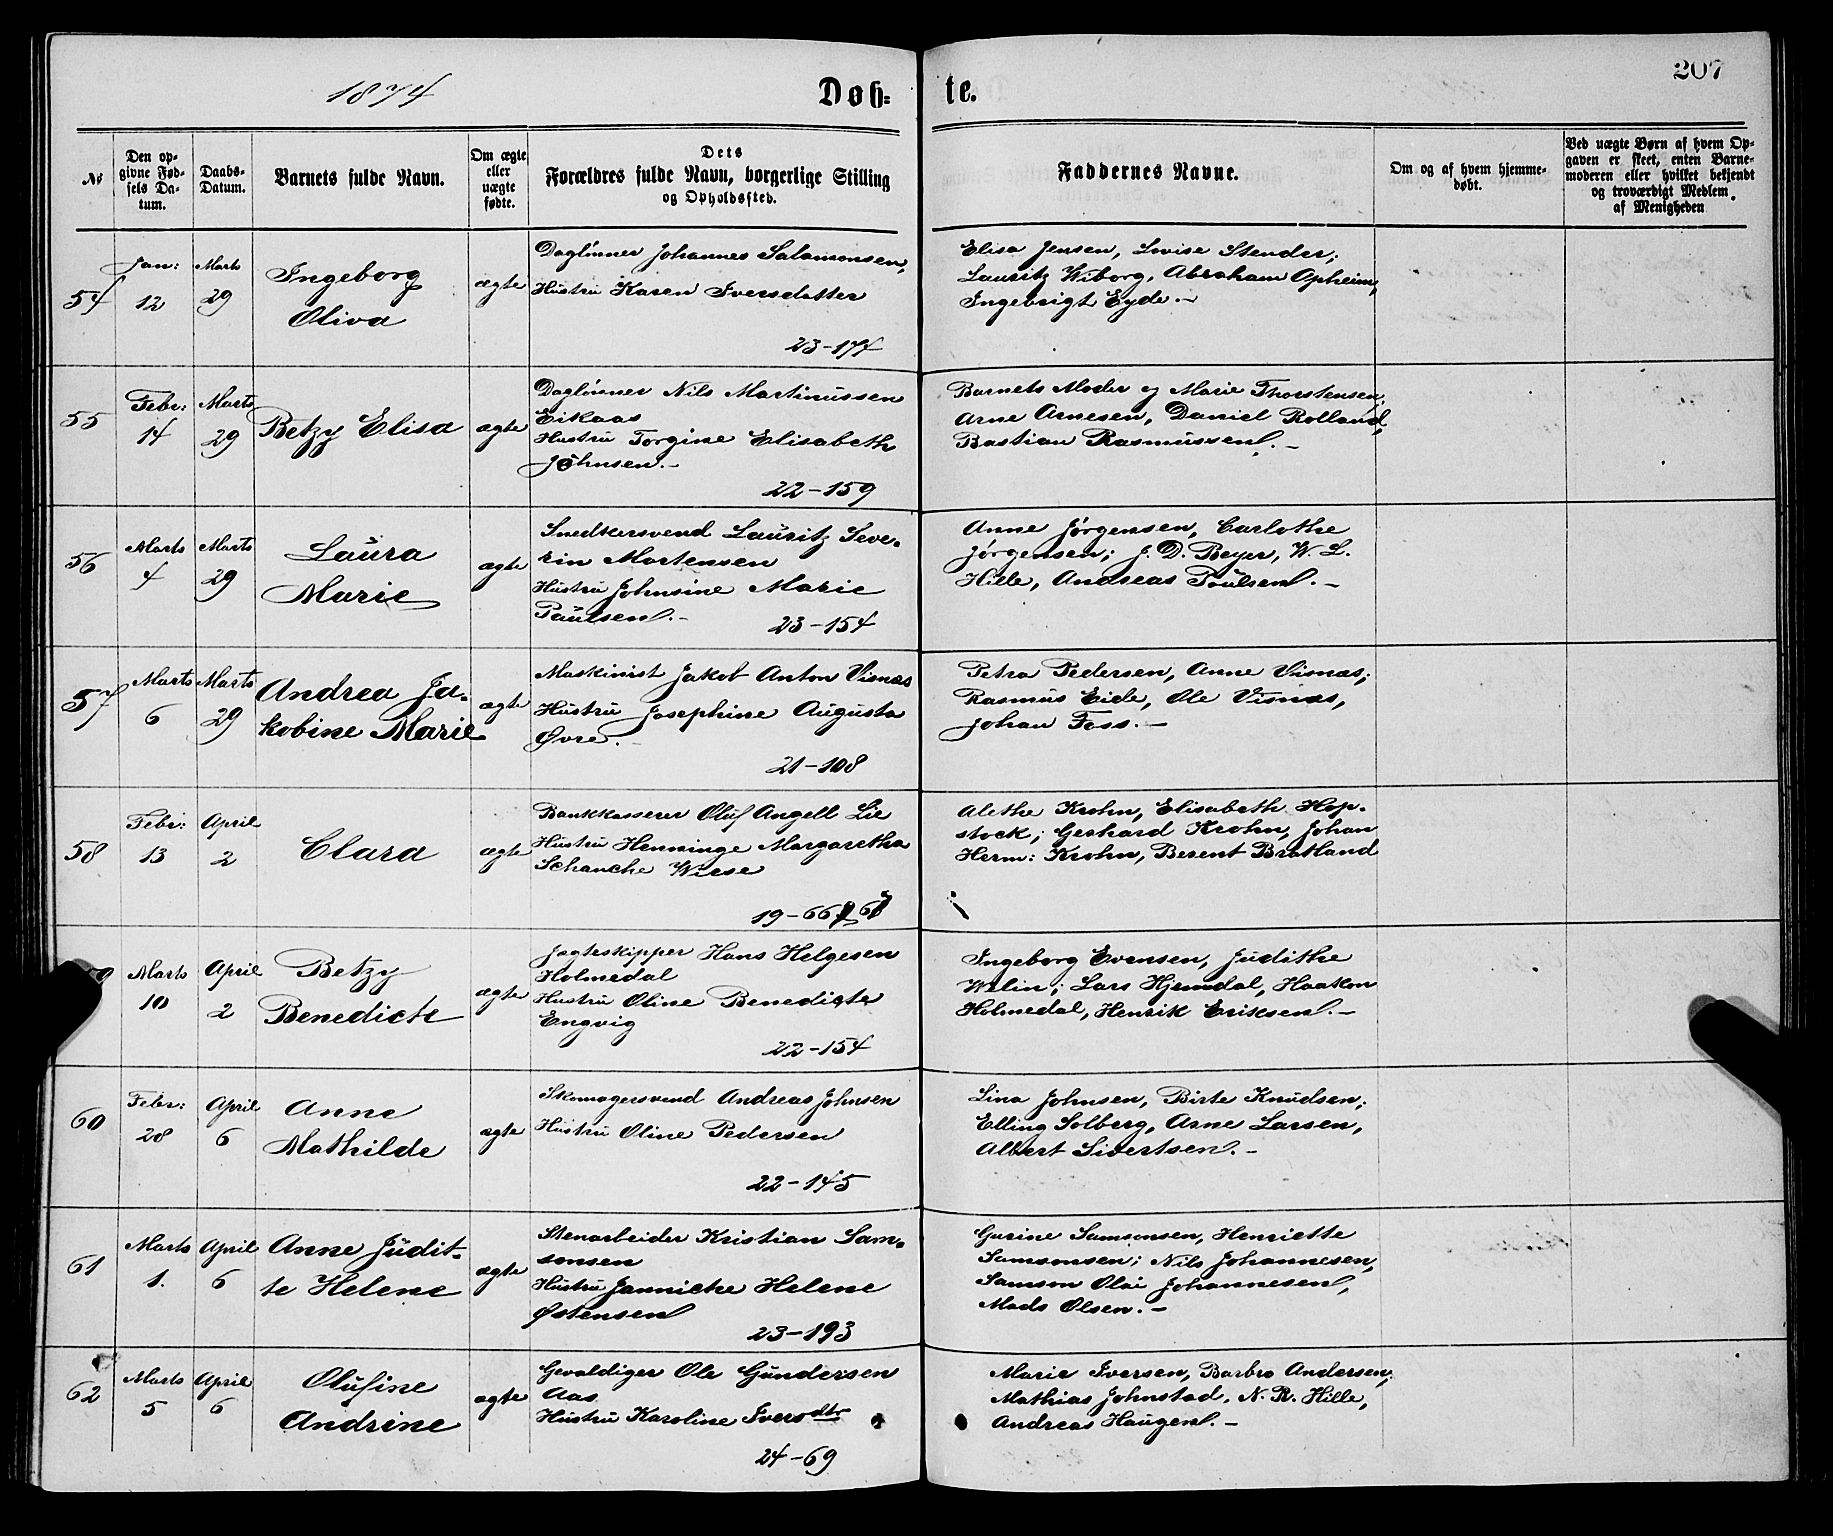 1874
Døb-
te.
207
No
Den op-
givne Fød-
sels Da-
tum.
Daabs-
Datum.
Barnets fulde Navn.
Om ægte
eller
uægte
fødte.
Dets
Forældres fulde Navn, borgerlige Stilling
og Opholdssted.
Faddernes Navne.
Om og af hvem hjemme-
døbt.
Ved uægte Børn af hvem Op-
gaven er skeet, enten Barne-
moderen eller hvilket bekjendt
og troværdigt Medlem
af Menigheden
54
Jan:
12
Marts
29
Ingeborg
Oliva
ægte
Daglønner Johannes Salamonsen,
Hustru Karen Iversdatter
23-174
Elisa Jensen, Lovise Stender;
Lauritz Wiborg, Abraham Opheim,
Ingebrigt Eyde.-
55
Febr:
14
Marts
29
Betzy Elisa
ægte
Daglønner Nils Martinussen
Eikaas
Hustru Torgine Elisabeth
Johnsen.-
22-159
Barnets Moder og Marie Thorstensen;
Arne Arnesen, Daniel Rolland,
Bastian Rasmussen.-
56
Marts
4
Marts
29
Laura
Marie
ægte
Snedkersvend Lauritz Seve-
rin Mortensen
Hustru Johnsine Marie
Paulsen.-
23-154
Anne Jørgensen, Carlothe
Jørgensen; J. D. Beyer, W. L.
Hille, Andreas Poulsen.-
57
Marts
6
Marts
29
Andrea Ja-
kobine Marie
ægte
Maskinist Jakob Anton Visnæs
Hustru Josephine Augusta
Øvre.
21-108
Petra Pedersen, Anne Visnæs;
Rasmus Eide, Ole Visnæs,
Johan Foss.-
58
Febr:
13
April
2
Clara
ægte
Bankkasserer Oluf Angell Lie
Hustru Henninge Margaretha
Schanche Wiese
19-66
Alethe Krohn, Elisabeth Hop-
stock; Gerhard Krohn, Johan
Herm: Krohn, Berent Bratland
9
Marts
10
April
2
Betzy
Benedicte
ægte
Jagteskipper Hans Helgesen
Holmedal
Hustru Oline Benedicte
Engvig
22-154
Ingeborg Evensen, Judithe
Welin; Lars Hjemdal, Haakon
Holmedal, Henrik Eriksen.-
60
Febr:
28
April
6
Anne
Mathilde
ægte
Skomagersvend Andreas Johnsen
Hustru Oline Pedersen
22-145
Lina Johnsen, Birte Knudsen;
Elling Solberg, Arne Larsen,
Albert Sivertsen.-
61
Marts
1.
April
6
Anne Judit-
te Helene
ægte
Stenarbeider Kristian Sam-
sonsen
Hustru Jannicke Helene
Østensen
23-193
Gurine Samsonsen, Henriette
Samsonsen; Nils Johannesen,
Samson Olai Johannesen,
Mads Olsen.-
62
Marts
5
April
6
Olufine
Andrine
ægte
Gevaldiger Ole Gundersen
Aas
Hustru Karoline Iversdtr
24-69
Marie Iversen, Barbro Andersen;
Mathias Johnstad, N. R. Hille,
Andreas Haugen.-